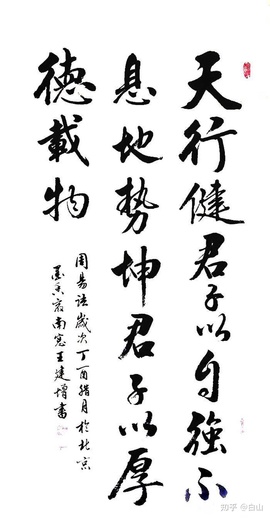 天行健君子以自強不
息地勢坤君子以厚
德載物
周易语歲次丁酉腊月於北京
墨香窝南窓王建增書
知乎 @白山